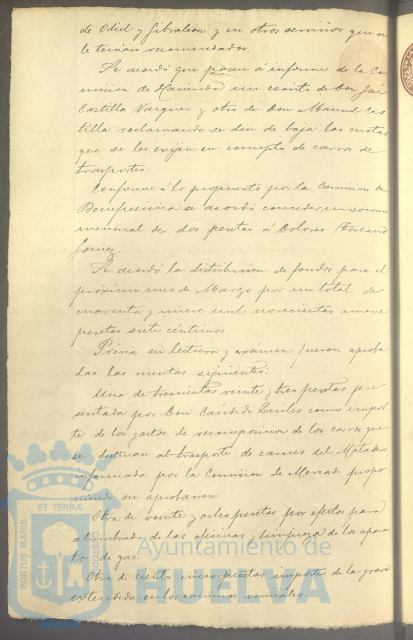 de Odiel y Gibraleon y en otros servicios que se
le tenian recomendados.
Se acordó que pasen á informe de la Co
mision de Hacienda un escrito de Don José
Castilla Vazquez y otro de Don Manuel Cas
tilla reclamando se den de baja las cuotas
que se les exijen en concepto de carros de
trasportes.
Conforme á lo propuesto por la Comision de
Beneficencia se acordó conceder un socorro
mensual de dos pesetas á Dolores
Gomez.
Se acordó la distribucion de fondos para el
próximo mes de Marzo por un total de
cuarenta y nueve mil novecientas nueve
pesetas siete céntimos.
Prévia su lectura y exámen fueron aproba
das las cuentas siguientes:
Una de trescientas veinte y tres pesetas pre
sentada por Don Cándido como impor
te de los gastos de recomposicion de los carros que
se destinan al trasporte de carnes del Matadero
informada por la Comision de Mercado propo
niendo su aprobacion
Otra de veinte y ocho pesetas por efectos para
alumbrado de las oficinas y limpieza de los apara
tos de gas.
Otra de ciento cinco pesetas importe de la grava
extendida en los caminos vecinales
PORTUS MARIS
ET TERRA
CUSTODIA
Ayuntamiento de
HUELVA